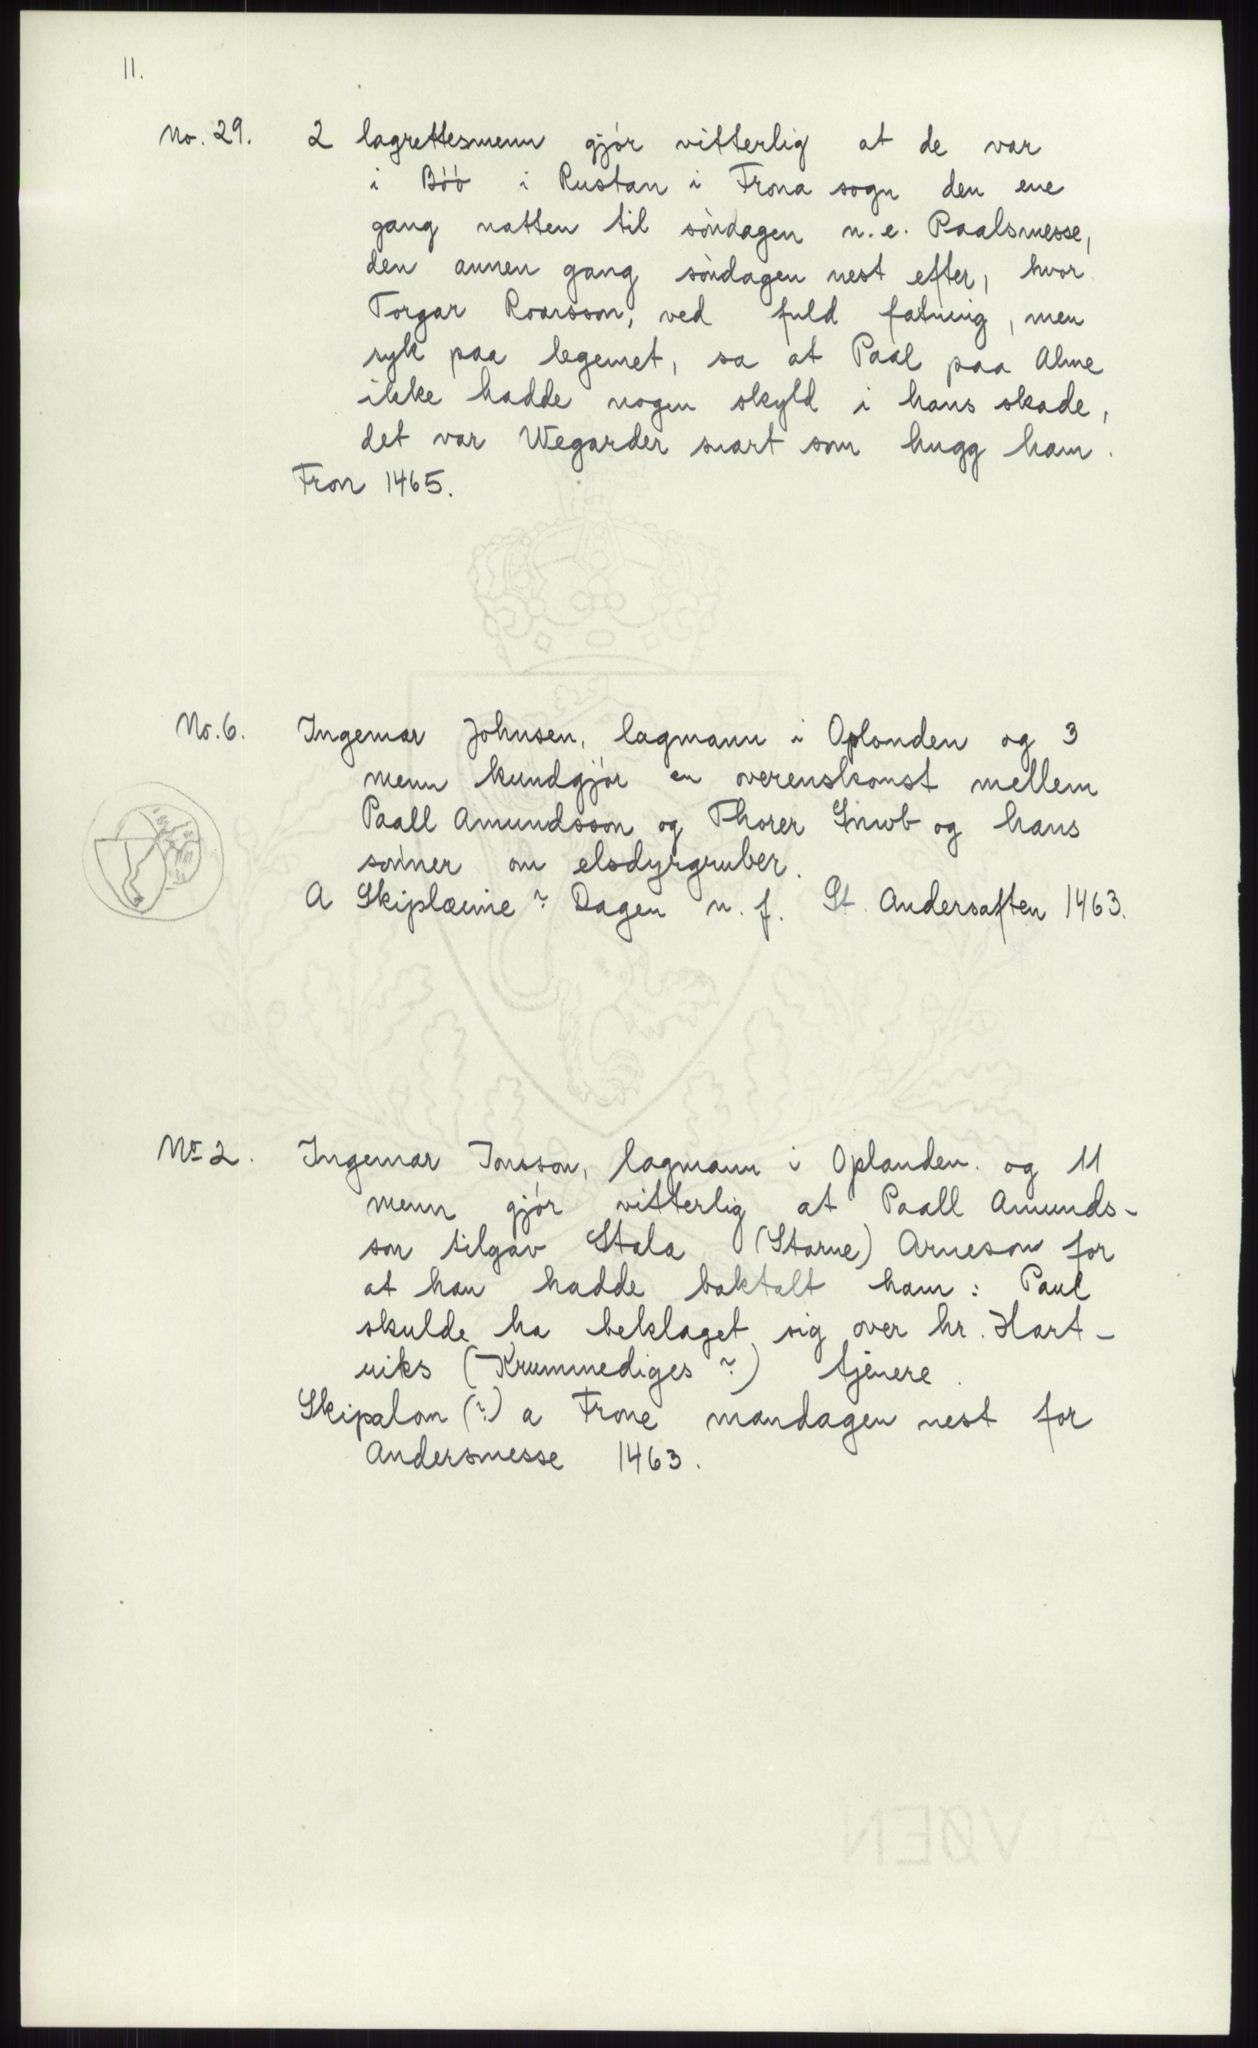 11.
No. 29. 2 lagrettesmenn gjör vitterlig at de var
i Böö i Rustan i Frona sogn den ene
gang natten til söndagen n.e. Paalsmesse,
den annen gang söndagen nest efter, hvor
Torgar Roarsson, ved fuld fatning, men
syk paa legemet, sa at Paal paa Alme
ikke hadde nogen skyld i hans skade,
det var Wegarder svart som hugg ham.
Fron 1465.
No. 6. Ingemar Johnsen, lagmann i Oplanden og 3
menn kundgjör en overenskomst mellem
Paall Amundsson og Thorer Snwb og hans
sönner om elsdyrgruber.
A Skiplæime? Dagen n. f. St. Andersaften 1463.
Nr 2. Ingemar Jonsson, lagmann i Oplanden og 11
menn gjör vitterlig at Paall Amunds-
son tilgav Stala (Starne) Arneson for
at han hadde baktalt ham: Paul
skulde ha beklaget sig over hr. Hart-
viks (Krummediges?) tjenere.
Skipalom (?) a Frone mandagen nest for
Andersmesse 1463.
ALVØEN